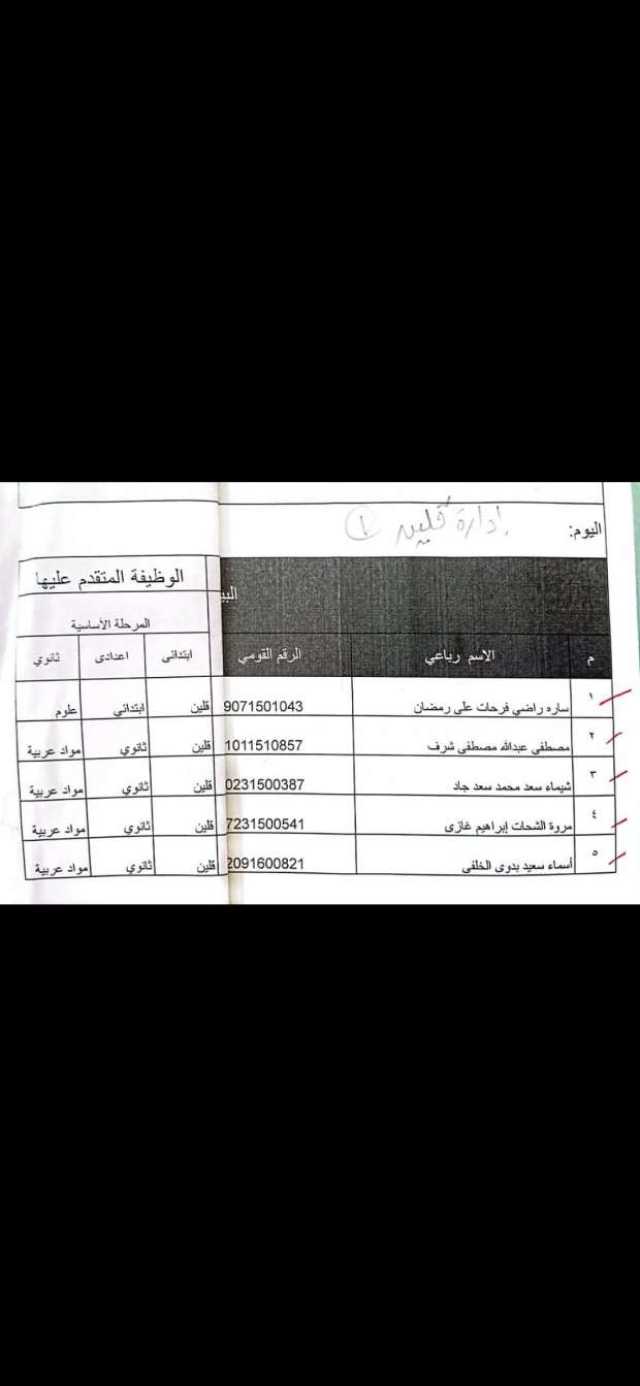 اليوم: إدارة قلين ١
البي
الوظيفة المتقدم عليها
المرحلة الأساسية
م الاسم رباعي الرقم القومي ابتدائى اعدادى ثانوي
١ ساره راضي فرحات على رمضان 9071501043 قلين ابتدائي علوم
٢ مصطفى عبدالله مصطفى شرف 1011510857 قلين ثانوي مواد عربية
٣ شيماء سعد محمد سعد جاد 0231500387 قلين ثانوي مواد عربية
٤ مروة الشحات إبراهيم غازى 7231500541 قلين ثانوي مواد عربية
٥ أسماء سعيد بدوى الخلفى 2091600821 قلين ثانوي مواد عربية